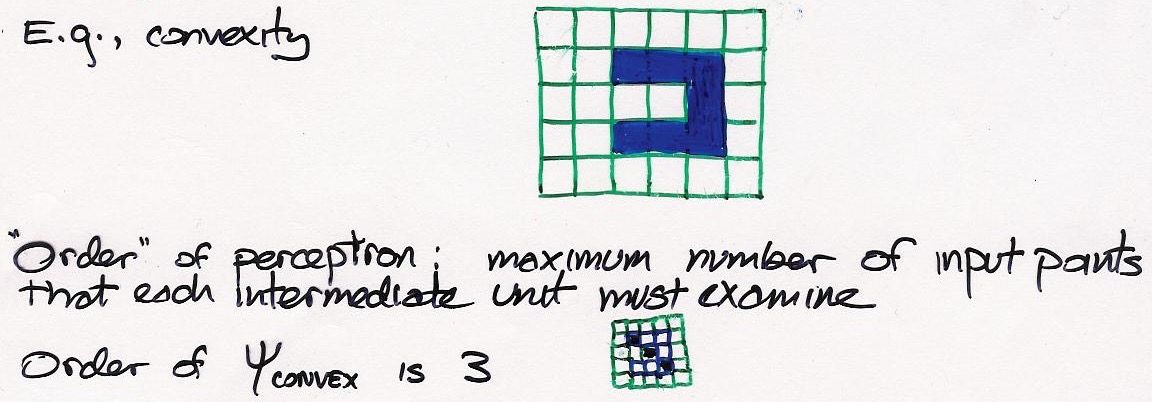 E.g., convexity
"Order" of perceptron: maximum number of input points
that each intermediate unit must examine
Order of ΨCONVEX is 3